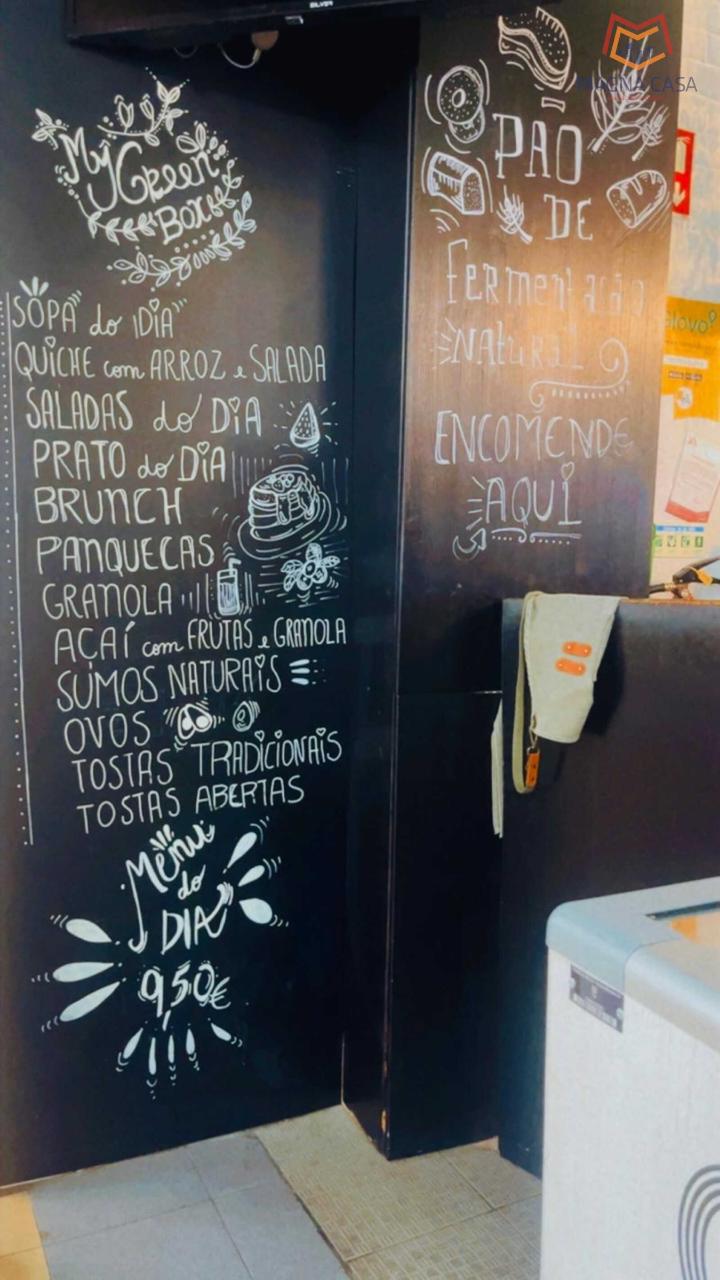 My
Green
Box
SOPA do DIA
QUICHE com ARROZ e SALADA
SALADAS do DIA
PRATO do DIA
BRUNCH
PANQUECAS
GRANOLA
AÇAÍ com FRUTAS e GRANOLA
SUMOS NATURAIS
OVOS
TOSTAS TRADICIONAIS
TOSTAS ABERTAS
Menu
do
DIA
9,50€
PÃO
DE
Fermentação
Natural
ENCOMENDE
AQUI
SILVER
CASA